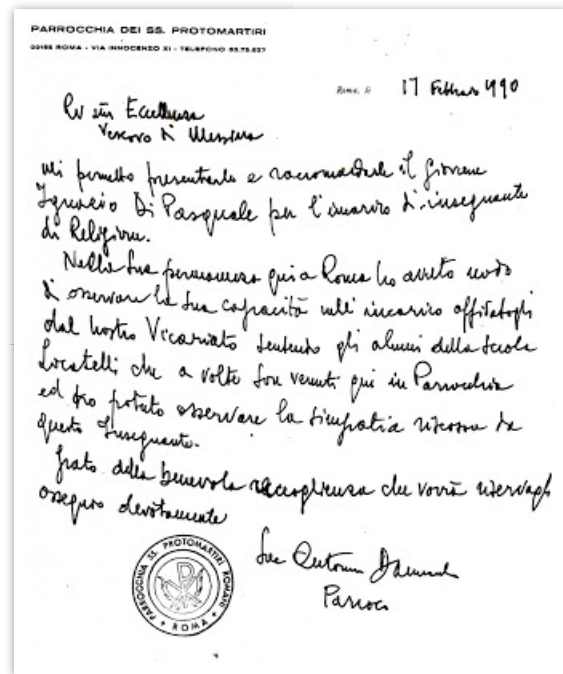 PARROCCHIA DEI SS. PROTOMARTIRI
00165 ROMA - VIA INNOCENZO XI - TELEFONO
Roma, li 17 Febbraio 1990
Eccellenza
Vescovo di Messina
mi permetto presentarle e raccomandarle il giovane
Ignazio Di Pasquale per l'incarico di insegnante
di Religione.
Nella sua permanenza qui a Roma ho avuto modo
di osservare la sua capacità nell'incarico affidatogli
dal nostro Vicariato sentendo gli alunni della scuola
Locatelli che a volte son venuti qui in Parrocchia
ed ho potuto osservare la simpatia riscossa da
questo Insegnante.
Grato della benevola accoglienza che vorrà riservargli
ossequio devotamente
Antonio
Parroco
PARROCCHIA SS. PROTOMARTIRI ROMANI
ROMA